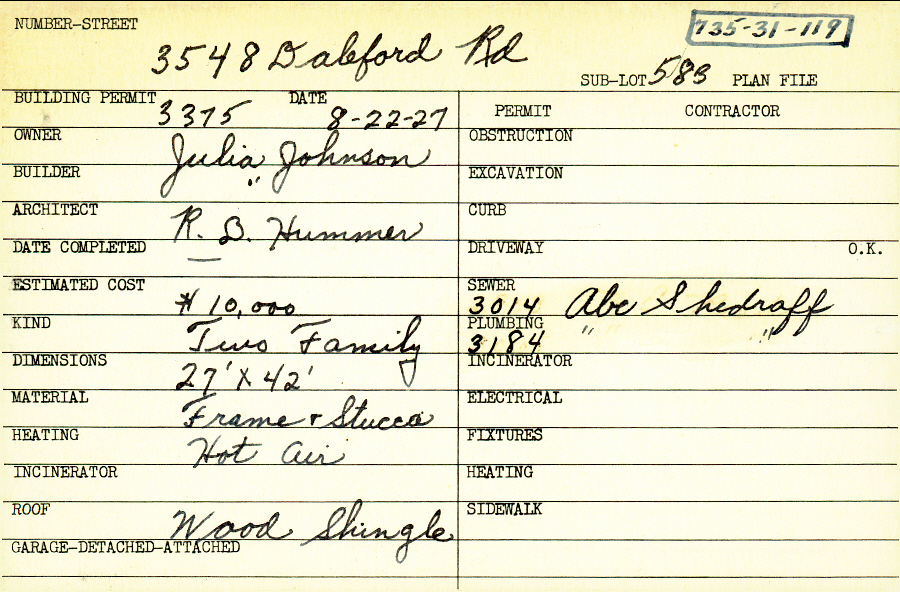 NUMBER-STREET 735-31-119
3548 Daleford Rd
SUB-LOT 583 PLAN FILE
BUILDING PERMIT 3375 DATE 8-22-27
PERMIT CONTRACTOR
OWNER Julia Johnson
OBSTRUCTION
BUILDER "
EXCAVATION
ARCHITECT R. B. Hummer
CURB
DATE COMPLETED —
DRIVEWAY O.K.
ESTIMATED COST $10,000
SEWER 3014 Abe Shedraff
KIND Two Family
PLUMBING 3184 " "
DIMENSIONS 27' X 42'
INCINERATOR
MATERIAL Frame & Stucco
ELECTRICAL
HEATING Hot Air
FIXTURES
INCINERATOR
HEATING
ROOF Wood Shingle
SIDEWALK
GARAGE-DETACHED-ATTACHED